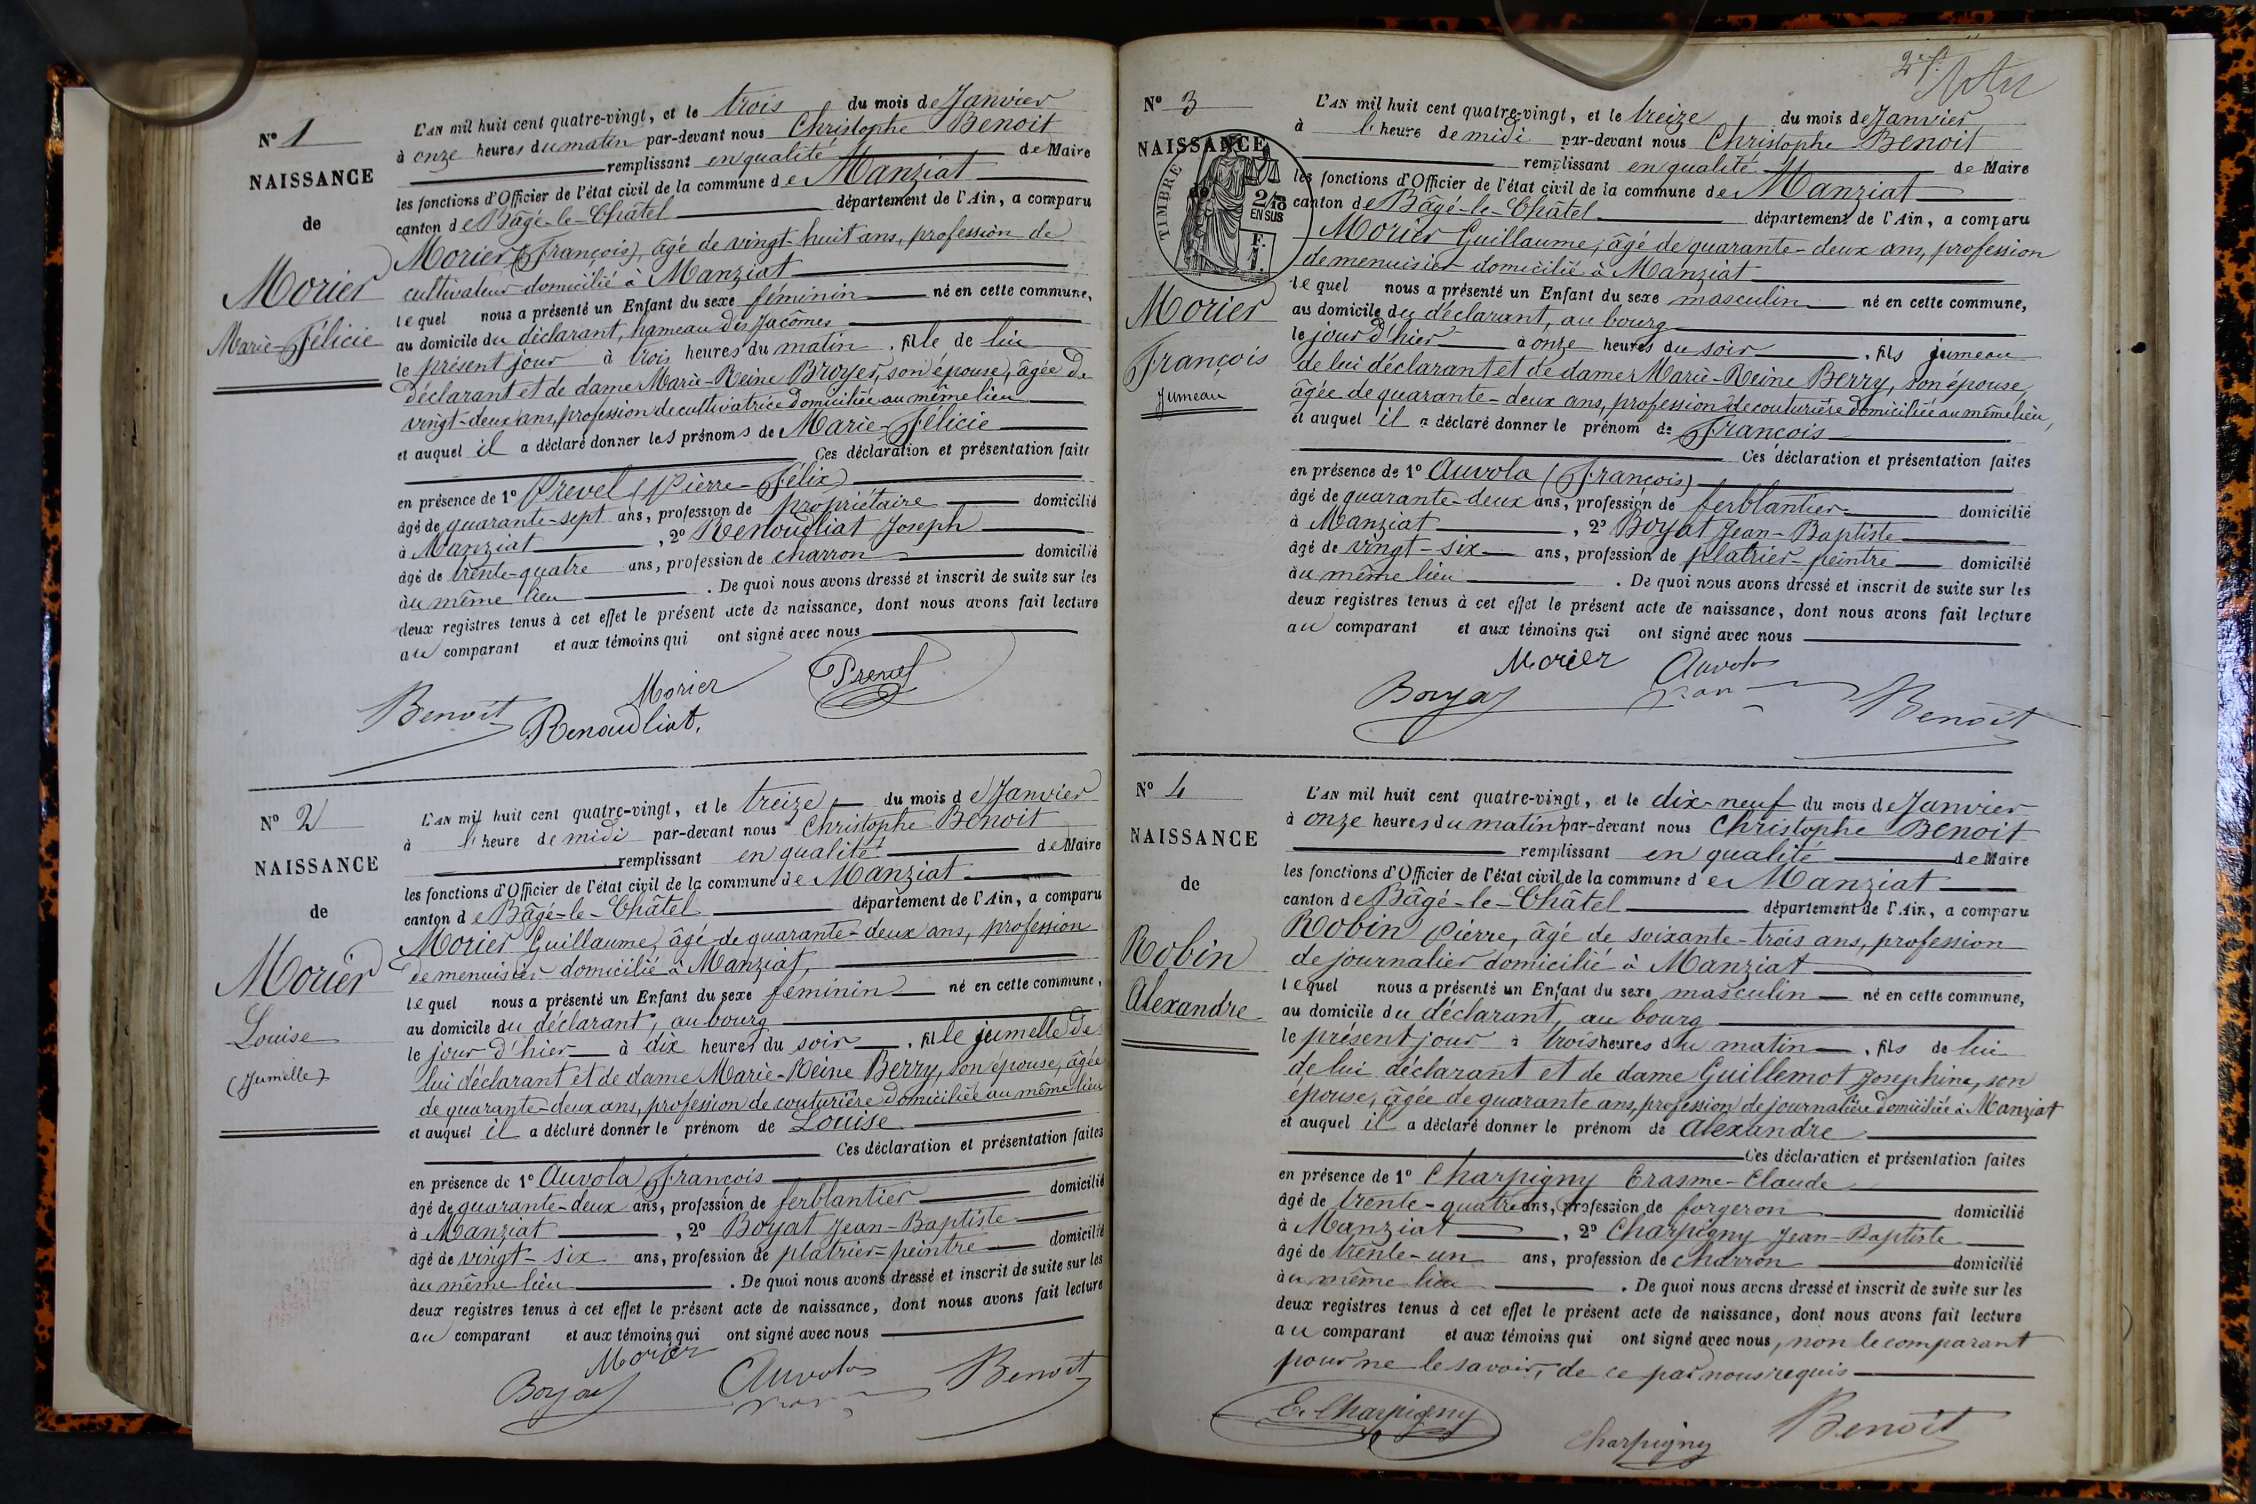 N° 1
NAISSANCE
de
Morier
Marie-Félicie
L'AN mil huit cent quatre-vingt, et le trois du mois de Janvier
à onze heures du matin par-devant nous Christophe Benoit
remplissant en qualité de Maire
les fonctions d'Officier de l'état civil de la commune de Manziat
canton de Bâgé-le-Châtel département de l'Ain, a comparu
Morier (François), âgé de vingt-huit ans, profession de
cultivateur domicilié à Manziat
lequel nous a présenté un Enfant du sexe féminin né en cette commune,
au domicile du déclarant, hameau des Jacômes
le présent jour à trois heures du matin, fille de lui
déclarant et de dame Marie-Reine Broyer, son épouse, âgée de
vingt-deux ans, profession de cultivatrice domiciliée au même lieu
et auquel il a déclaré donner les prénoms de Marie-Félicie
Ces déclaration et présentation faites
en présence de 1° Prevel (Pierre-Félix)
âgé de quarante-sept ans, profession de propriétaire domicilié
à Manziat, 2° Renoudliat Joseph
âgé de trente-quatre ans, profession de charron domicilié
au même lieu. De quoi nous avons dressé et inscrit de suite sur les
deux registres tenus à cet effet le présent acte de naissance, dont nous avons fait lecture
au comparant et aux témoins qui ont signé avec nous
Morier Prevel
Benoit Renoudliat.
N° 2
NAISSANCE
de
Morier
Louise
(Jumelle)
L'AN mil huit cent quatre-vingt, et le treize du mois de Janvier
à l'heure de midi par-devant nous Christophe Benoit
remplissant en qualité de Maire
les fonctions d'Officier de l'état civil de la commune de Manziat
canton de Bâgé-le-Châtel département de l'Ain, a comparu
Morier Guillaume, âgé de quarante-deux ans, profession
de menuisier domicilié à Manziat,
lequel nous a présenté un Enfant du sexe féminin né en cette commune,
au domicile du déclarant, au bourg
le jour d'hier à dix heures du soir, fille jumelle de
lui déclarant et de dame Marie-Reine Berry, son épouse, âgée
de quarante-deux ans, profession de couturière domiciliée au même lieu
et auquel il a déclaré donner le prénom de Louise
Ces déclaration et présentation faites
en présence de 1° Auvola François
âgé de quarante-deux ans, profession de ferblantier domicilié
à Manziat, 2° Boyat Jean-Baptiste
âgé de vingt-six ans, profession de platrier-peintre domicilié
au même lieu. De quoi nous avons dressé et inscrit de suite sur les
deux registres tenus à cet effet le présent acte de naissance, dont nous avons fait lecture
au comparant et aux témoins qui ont signé avec nous
Morier
Boyat Auvola Benoit
N° 3
NAISSANCE
TIMBRE
2/10
EN SUS
F.
1.
Morier
François
Jumeau
L'AN mil huit cent quatre-vingt, et le treize du mois de Janvier
à l'heure de midi par-devant nous Christophe Benoit
remplissant en qualité de Maire
les fonctions d'Officier de l'état civil de la commune de Manziat
canton de Bâgé-le-Châtel département de l'Ain, a comparu
Morier Guillaume, âgé de quarante-deux ans, profession
de menuisier domicilié à Manziat
lequel nous a présenté un Enfant du sexe masculin né en cette commune,
au domicile du déclarant, au bourg
le jour d'hier à onze heures du soir, fils jumeau
de lui déclarant et de dame Marie-Reine Berry, son épouse,
âgée de quarante-deux ans, profession de couturière domiciliée au même lieu,
et auquel il a déclaré donner le prénom de François
Ces déclaration et présentation faites
en présence de 1° Auvola (François)
âgé de quarante-deux ans, profession de ferblantier domicilié
à Manziat, 2° Boyat Jean-Baptiste
âgé de vingt-six ans, profession de platrier-peintre domicilié
au même lieu. De quoi nous avons dressé et inscrit de suite sur les
deux registres tenus à cet effet le présent acte de naissance, dont nous avons fait lecture
au comparant et aux témoins qui ont signé avec nous
Morier Auvola
Boyat Benoit
N° 4
NAISSANCE
de
Robin
Alexandre
L'AN mil huit cent quatre-vingt, et le dix-neuf du mois de Janvier
à onze heures du matin par-devant nous Christophe Benoit
remplissant en qualité de Maire
les fonctions d'Officier de l'état civil de la commune de Manziat
canton de Bâgé-le-Châtel département de l'Ain, a comparu
Robin Pierre, âgé de soixante-trois ans, profession
de journalier domicilié à Manziat
lequel nous a présenté un Enfant du sexe masculin né en cette commune,
au domicile du déclarant, au bourg
le présent jour à trois heures du matin, fils de lui
de lui déclarant et de dame Guillemot Josephine, son
épouse, âgée de quarante ans, profession de journalière domiciliée à Manziat
et auquel il a déclaré donner le prénom de Alexandre
Ces déclaration et présentation faites
en présence de 1° Charpigny Erasme-Claude
âgé de trente-quatre ans, profession de forgeron domicilié
à Manziat, 2° Charpigny Jean-Baptiste
âgé de trente-un ans, profession de charron domicilié
au même lieu. De quoi nous avons dressé et inscrit de suite sur les
deux registres tenus à cet effet le présent acte de naissance, dont nous avons fait lecture
au comparant et aux témoins qui ont signé avec nous, non le comparant
pour ne le savoir, de ce par nous requis
E. Charpigny Charpigny Benoit